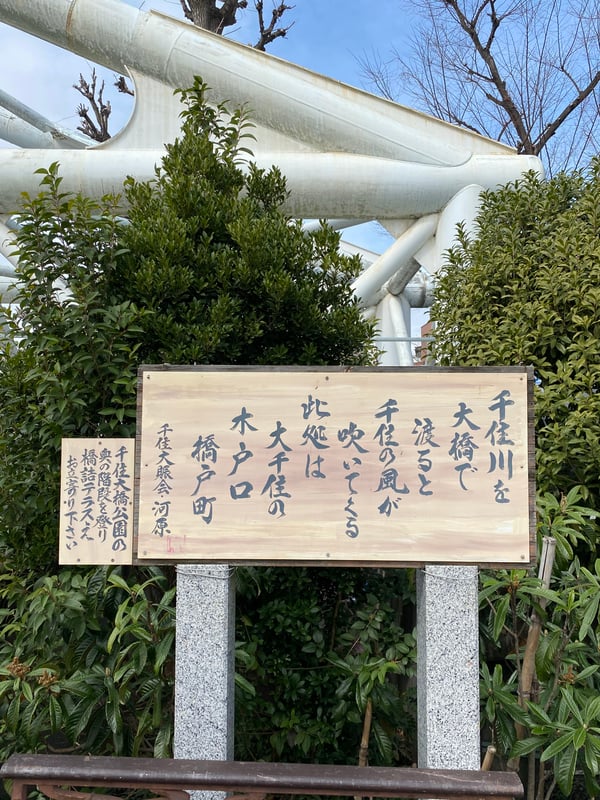 千住川を
大橋で
渡ると
千住の風が
吹いてくる
此処は
大千住の
木戸口
橋戸町
千住大賑会 河原
千住大橋公園の
奥の階段を登り
橋詰テラスえ
お立寄り下さい